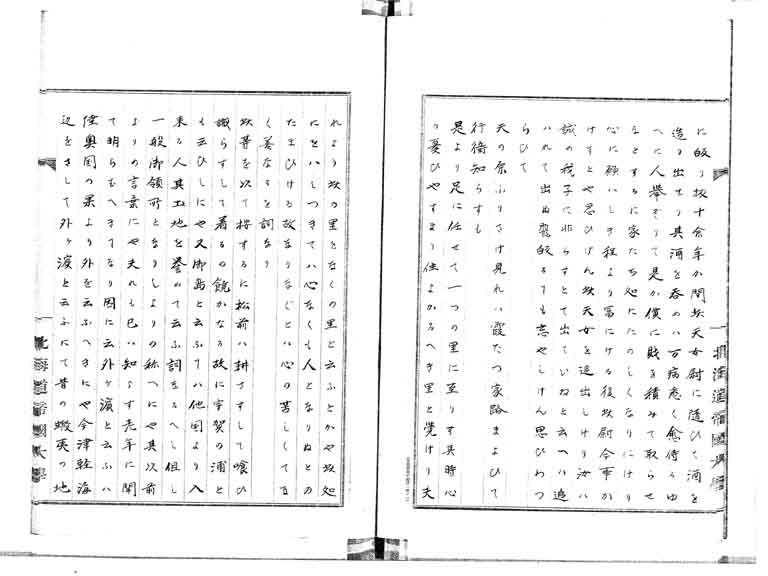 に皈り扨十余年か間扨天女尉に随ひて酒を
造り出せり其酒を呑めハ万病悉く愈侍るゆ
へに人挙そりて是か價に財を積みて取らせ
なとするに家たち処にたのしくなりにけり
心に願ハしき程より冨にける後扨尉今事か
けすとや思ひけん扨天女を追出しけり汝ハ
誠の我子に非らすとて出ていねと云へハ追
ハれて出ぬ皈るても志やしけん思ひわつ
らひて
天の原ふりさけ見れハ霞たつ家路まよひて
行衛知らすも
是より足に任せて一つの里に至りす其時心
り憂ひやすまり住よかるへき里と覚けり夫
れより扨の里となくの里と云ふとかや扨処
にとハしつきてハ心なくも人となりぬとの
たまひける故なりなくとハ心の苦しくてな
く羙なるを詞なり
扨等を以て按するに松前ハ耕さすして喰ひ
識らすして着るの饒かなる故に宇賀の浦と
も云ひしにや又御島と云ふてハ他国より入
来る人其土地を誉めて云ふ詞なるへし但し
一般御領所となりしよりの称へにや其以前
よりの言葉にや夫れも已ハ知らす老年に聞
て明らむへきてなり因に云外ヶ濱と云ふハ
陸奥国の果より外を云ふへきにや今津軽海
辺をさして外ヶ濱と云ふにて昔の蝦夷の地
北海道帝國大學